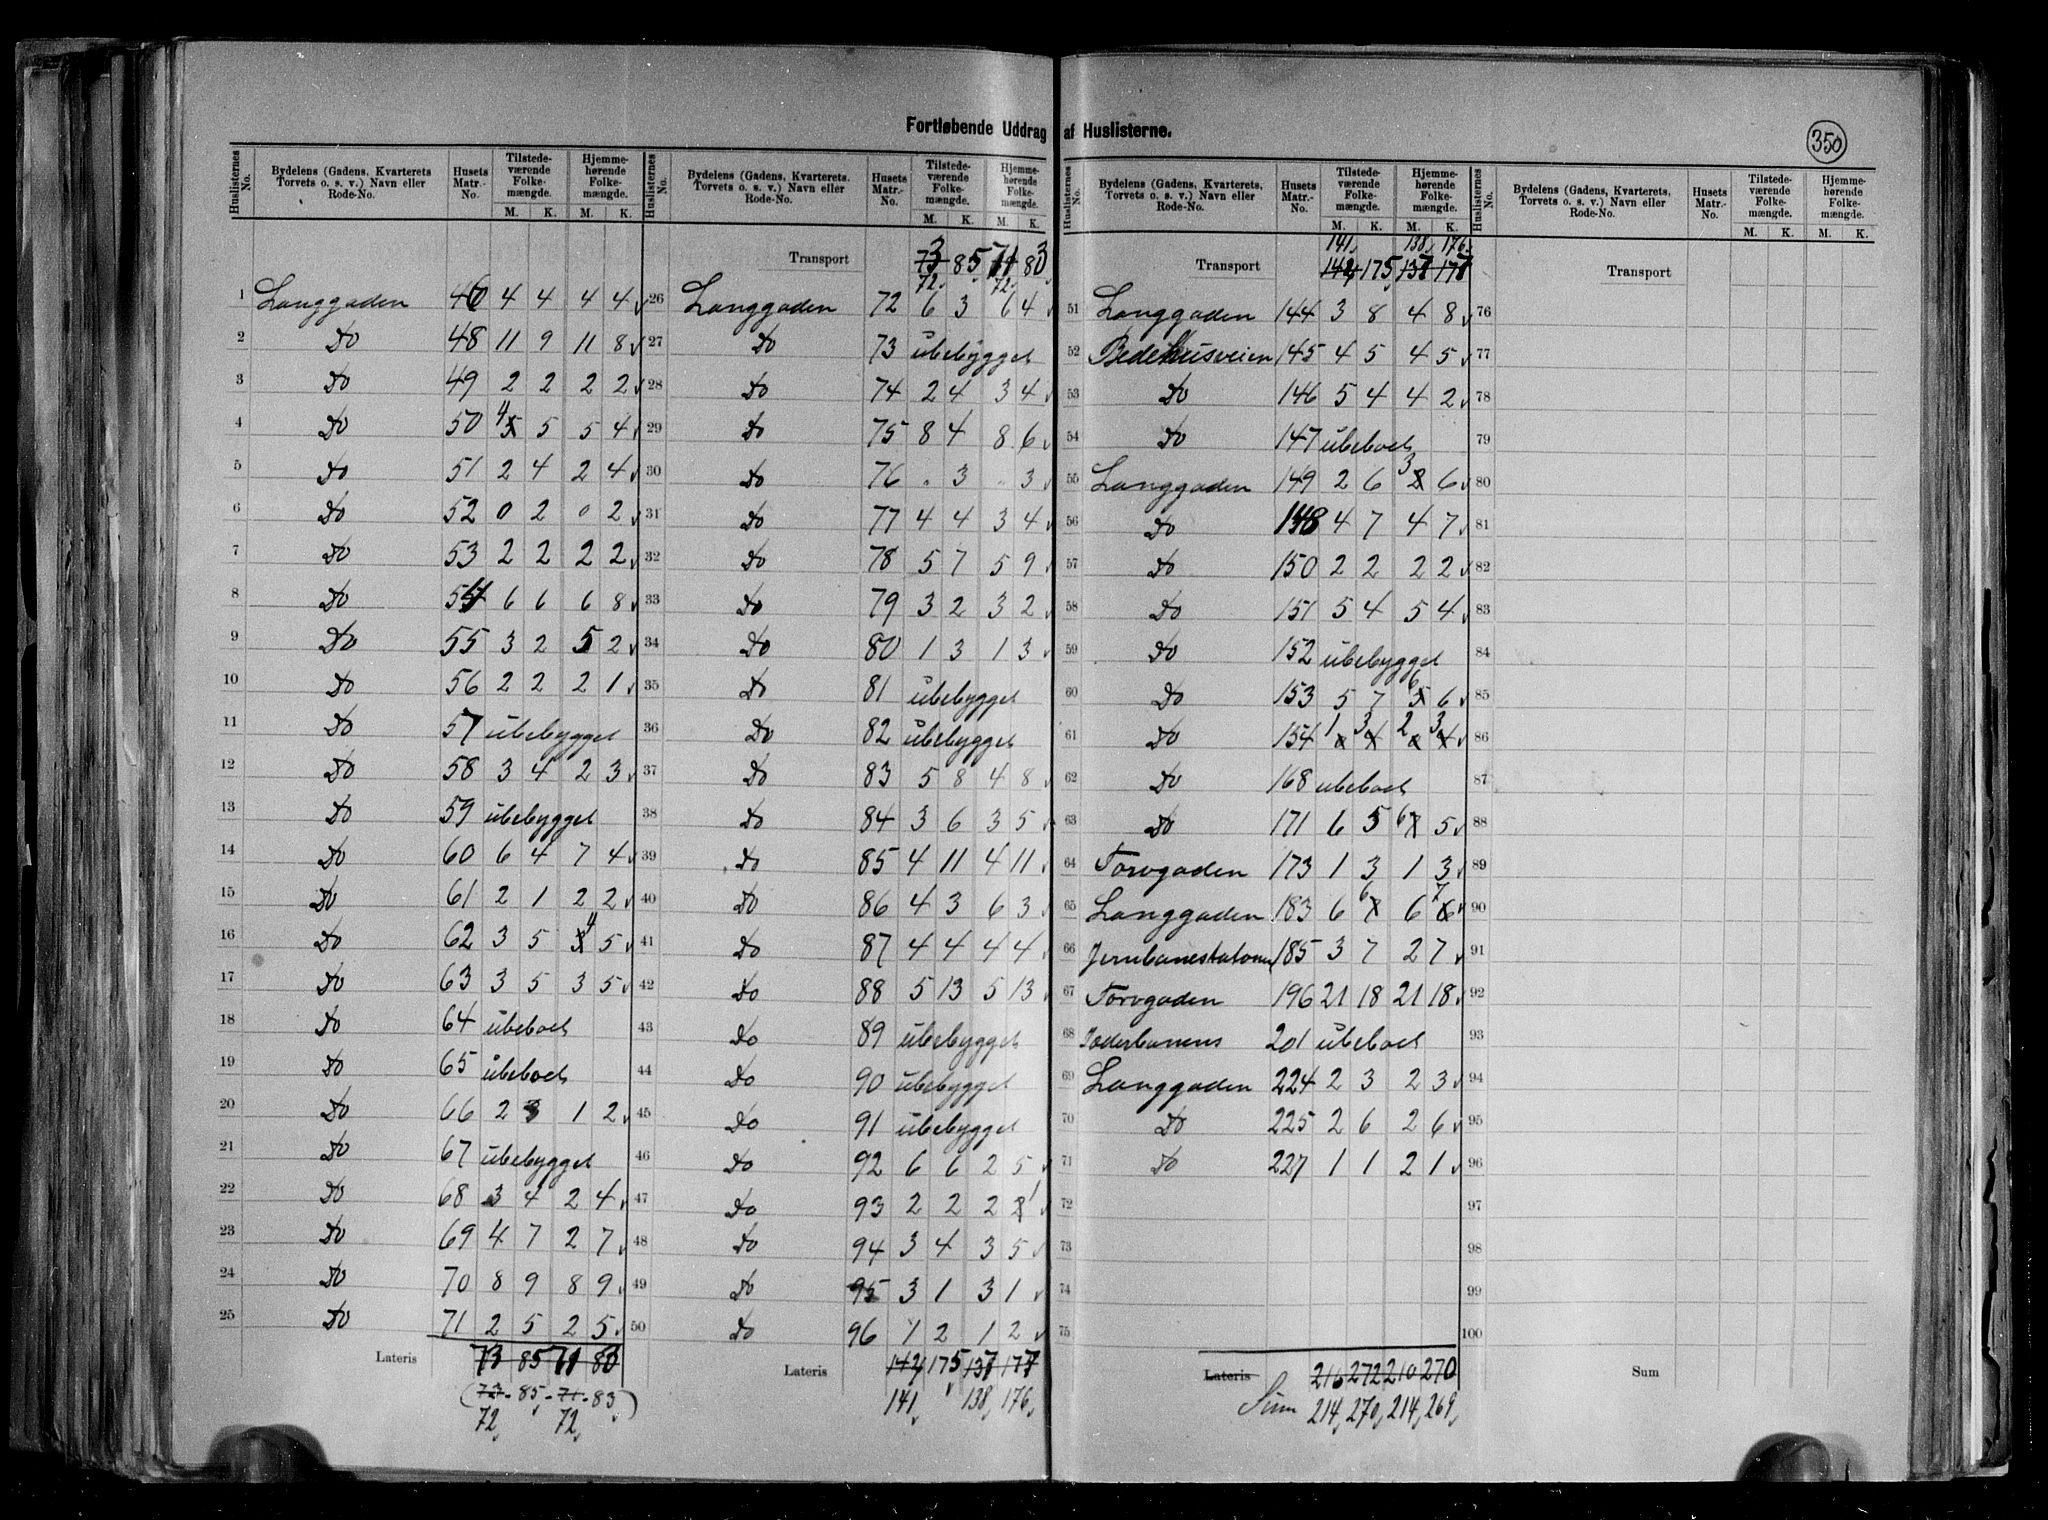 Fortløbende Uddrag af Huslisterne.
350
Huslisternes No. | Bydelens (Gadens, Kvarterets Torvets o. s. v.) Navn eller Rode-No. | Husets Matr.-No. | Tilstedeværende Folkemængde. M. K. | Hjemmehørende Folkemængde. M. K.
1 Langgaden 46 4 4 4 4
2 Do 48 11 9 11 8
3 Do 49 2 2 2 2
4 Do 50 4 5 5 4
5 Do 51 2 4 2 4
6 Do 52 0 2 0 2
7 Do 53 2 2 2 2
8 Do 54 6 6 6 8
9 Do 55 3 2 5 2
10 Do 56 2 2 2 1
11 Do 57 ubebygget
12 Do 58 3 4 2 3
13 Do 59 ubebygget
14 Do 60 6 4 7 4
15 Do 61 2 1 2 2
16 Do 62 3 5 4 5
17 Do 63 3 5 3 5
18 Do 64 ubeboet
19 Do 65 ubeboet
20 Do 66 2 3 1 2
21 Do 67 ubebygget
22 Do 68 3 4 2 4
23 Do 69 4 7 2 7
24 Do 70 8 9 8 9
25 Do 71 2 5 2 5
Lateris 73 85 71 83
(73 - 85 - 71 - 83)
72 72
Huslisternes No. | Bydelens (Gadens, Kvarterets, Torvets o. s. v.) Navn eller Rode-No. | Husets Matr.-No. | Tilstedeværende Folkemængde. M. K. | Hjemmehørende Folkemængde. M. K.
Transport 73 85 71 83
72 72
26 Langgaden 72 6 3 6 4
27 Do 73 ubebygget
28 Do 74 2 4 3 4
29 Do 75 8 4 8 6
30 Do 76 . 3 . 3
31 Do 77 4 4 3 4
32 Do 78 5 7 5 9
33 Do 79 3 2 3 2
34 Do 80 1 3 1 3
35 Do 81 ubebygget
36 Do 82 ubebygget
37 Do 83 5 8 4 8
38 Do 84 3 6 3 5
39 Do 85 4 11 4 11
40 Do 86 4 3 6 3
41 Do 87 4 4 4 4
42 Do 88 5 13 5 13
43 Do 89 ubebygget
44 Do 90 ubebygget
45 Do 91 ubebygget
46 Do 92 6 6 2 5
47 Do 93 2 2 2 1
48 Do 94 3 4 3 5
49 Do 95 3 1 3 1
50 Do 96 1 2 1 2
Lateris 142 175 137 177
141 138 176
Huslisternes No. | Bydelens (Gadens, Kvarterets, Torvets o. s. v.) Navn eller Rode-No. | Husets Matr.-No. | Tilstedeværende Folkemængde. M. K. | Hjemmehørende Folkemængde. M. K.
141 138 176
Transport 142 175 137 177
51 Langgaden 144 3 8 4 8
52 Bedehusveien 145 4 5 4 5
53 Do 146 5 4 4 2
54 Do 147 ubeboet
55 Langgaden 149 2 6 3 6
56 Do 148 4 7 4 7
57 Do 150 2 2 2 2
58 Do 151 5 4 5 4
59 Do 152 ubebygget
60 Do 153 5 7 6 6
61 Do 154 1 3 2 3
62 Do 168 ubeboet
63 Do 171 6 5 6 5
64 Torvgaden 173 1 3 1 3
65 Langgaden 183 6 6 6 7
66 185 3 7 2 7
67 Torvgaden 196 21 18 21 18
68 Jæderbanens 201 ubeboet
69 Langgaden 224 2 3 2 3
70 Do 225 2 6 2 6
71 Do 227 1 1 2 1
72
73
74
75
Lateris 216 272 210 270
Sum 214 270 214 269
Huslisternes No. | Bydelens (Gadens, Kvarterets, Torvets o. s. v.) Navn eller Rode-No. | Husets Matr.-No. | Tilstedeværende Folkemængde. M. K. | Hjemmehørende Folkemængde. M. K.
Transport
76
77
78
79
80
81
82
83
84
85
86
87
88
89
90
91
92
93
94
95
96
97
98
99
100
Sum